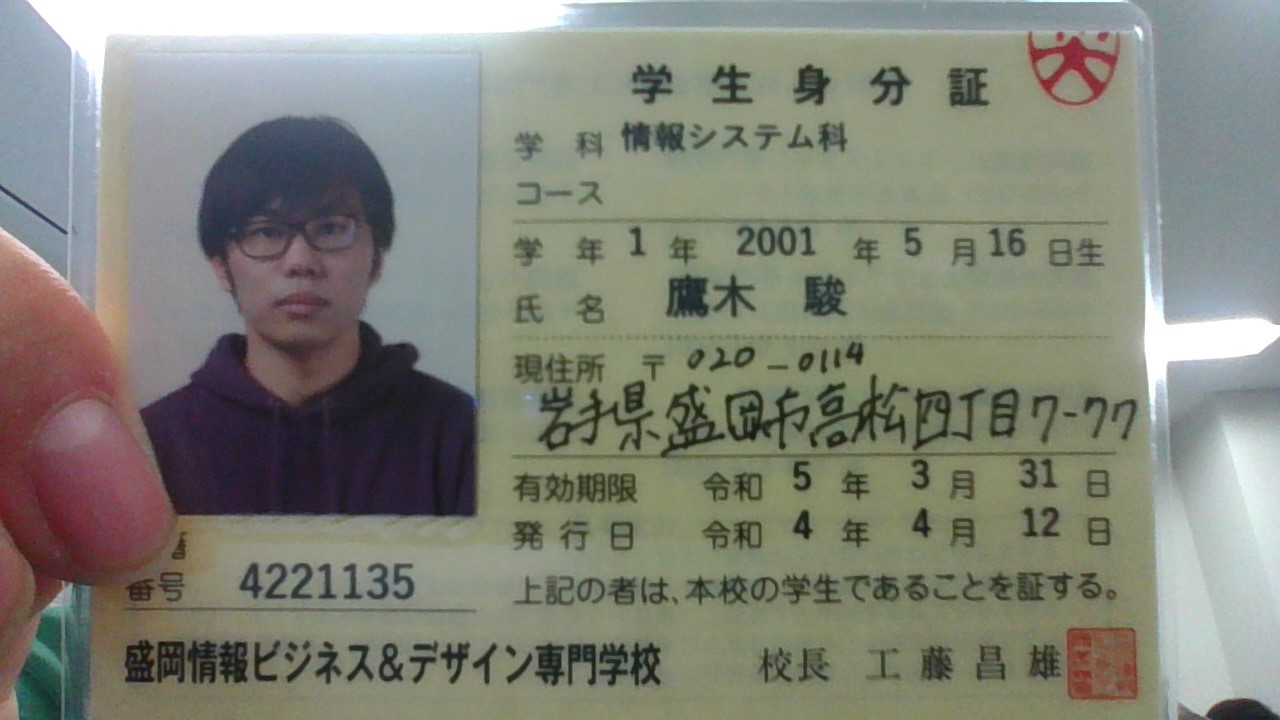 学生身分証
学科 情報システム科
コース
学年 1年 2001年5月16日生
氏名 鷹木 駿
現住所 〒020-0114
岩手県盛岡市高松四丁目7-77
有効期限 令和5年3月31日
発行日 令和4年4月12日
番号 4221135
上記の者は、本校の学生であることを証する。
盛岡情報ビジネス&デザイン専門学校 校長 工藤昌雄